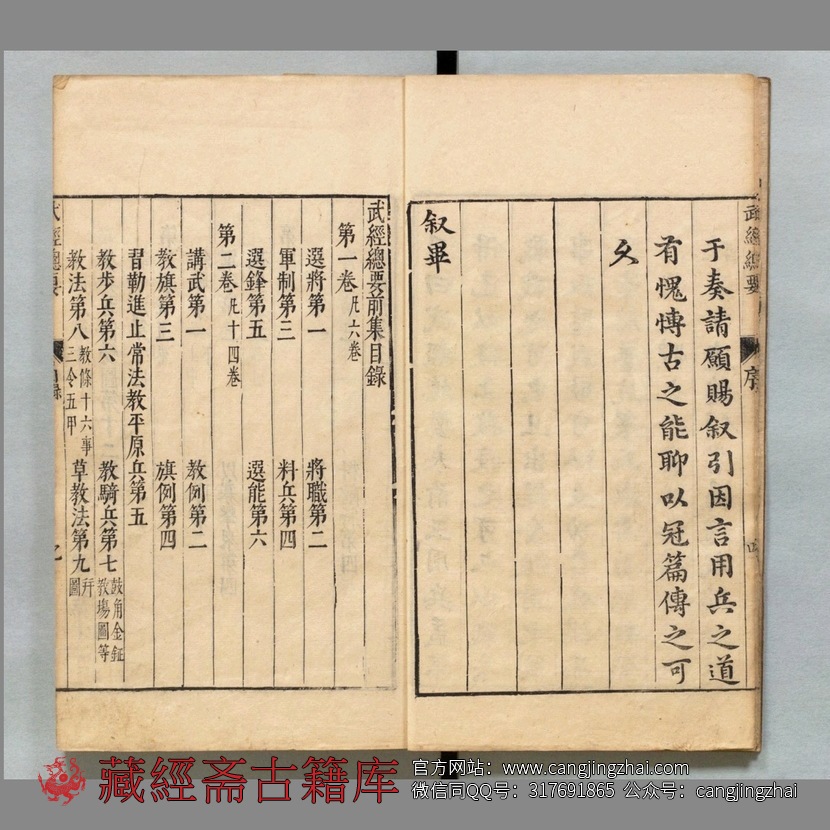 武經總要
序
于奏請願賜叙引因言用兵之道
有愧慱古之能聊以冠篇傳之可
久
叙畢
武經總要前集目錄
第一卷 凡六卷
選將第一 將職第二
軍制第三 料兵第四
選鋒第五 選能第六
第二卷 凡十四卷
講武第一 教例第二
教旗第三 旗例第四
習勒進止常法教平原兵第五
教步兵第六 教騎兵第七 鼓角金鉦教場圖等
教法第八 教條十六事三令五甲 草教法第九 并圖
武經總要
目錄
藏經斋古籍库
官方网站：www.cangjingzhai.com
微信同QQ号：317691865 公众号：cangjingzhai